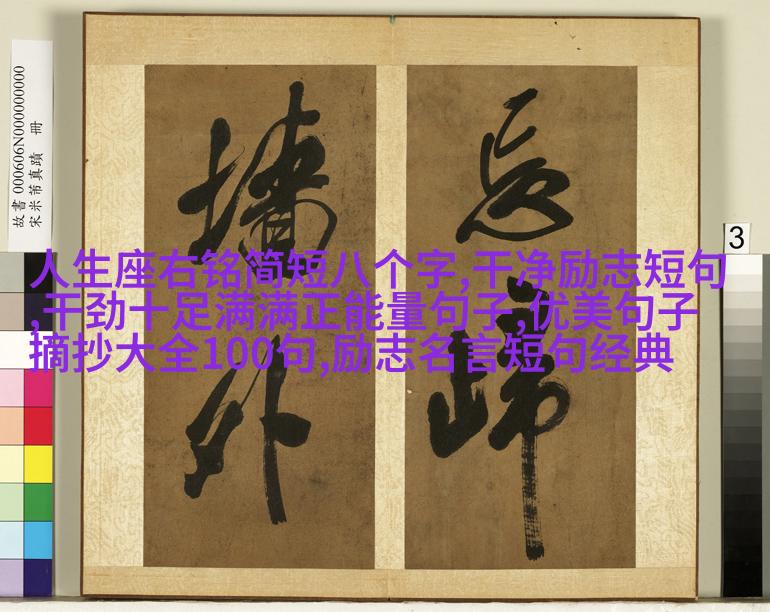 故書 000606N000000000
宋米芾真蹟 冊
忘歸
墻外
3
人生座右铭简短八个字,干净励志短句
,干劲十足满满正能量句子,优美句子
摘抄大全100句,励志名言短句经典